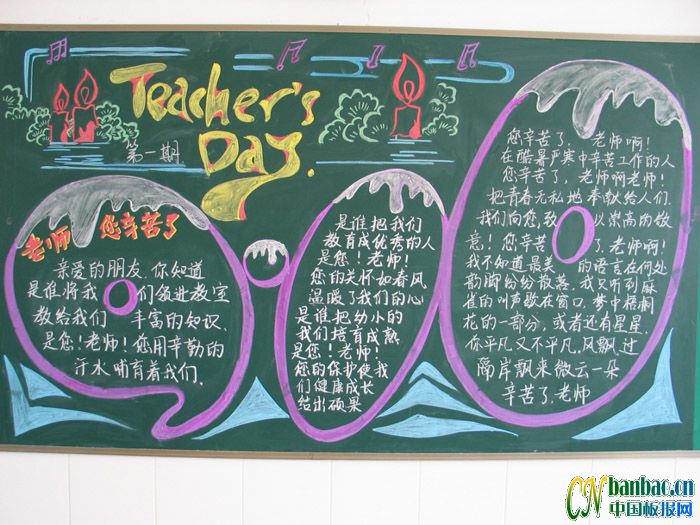 Teacher's
Day.
第一期
老师 您辛苦了
亲爱的朋友.你知道
是谁将我们领进教室
教给我们丰富的知识.
是您!老师!您用辛勤的
汗水哺育着我们.
是谁把我们
教育成优秀的人
是您!老师!
您的关怀如春风
温暖了我们的心
是谁把幼小的
我们培育成熟
是您!老师!
您的保护使我
们健康成长
结出硕果
您辛苦了、老师啊!
在酷暑严寒中辛苦工作的人
您辛苦了,老师啊老师!
把青春无私地奉献给人们.
我们向您,致以崇高的敬
意!您辛苦了、老师啊!
我不知道最美的语言在何处
韵脚纷纷散落、我只听到麻
雀的叫声歇在窗口,梦中梧桐
花的一部分,或者还有星星.
你平凡又不平凡.风飘过
隔岸飘来微云一朵
辛苦了.老师
CN banbao.cn
中国板报网